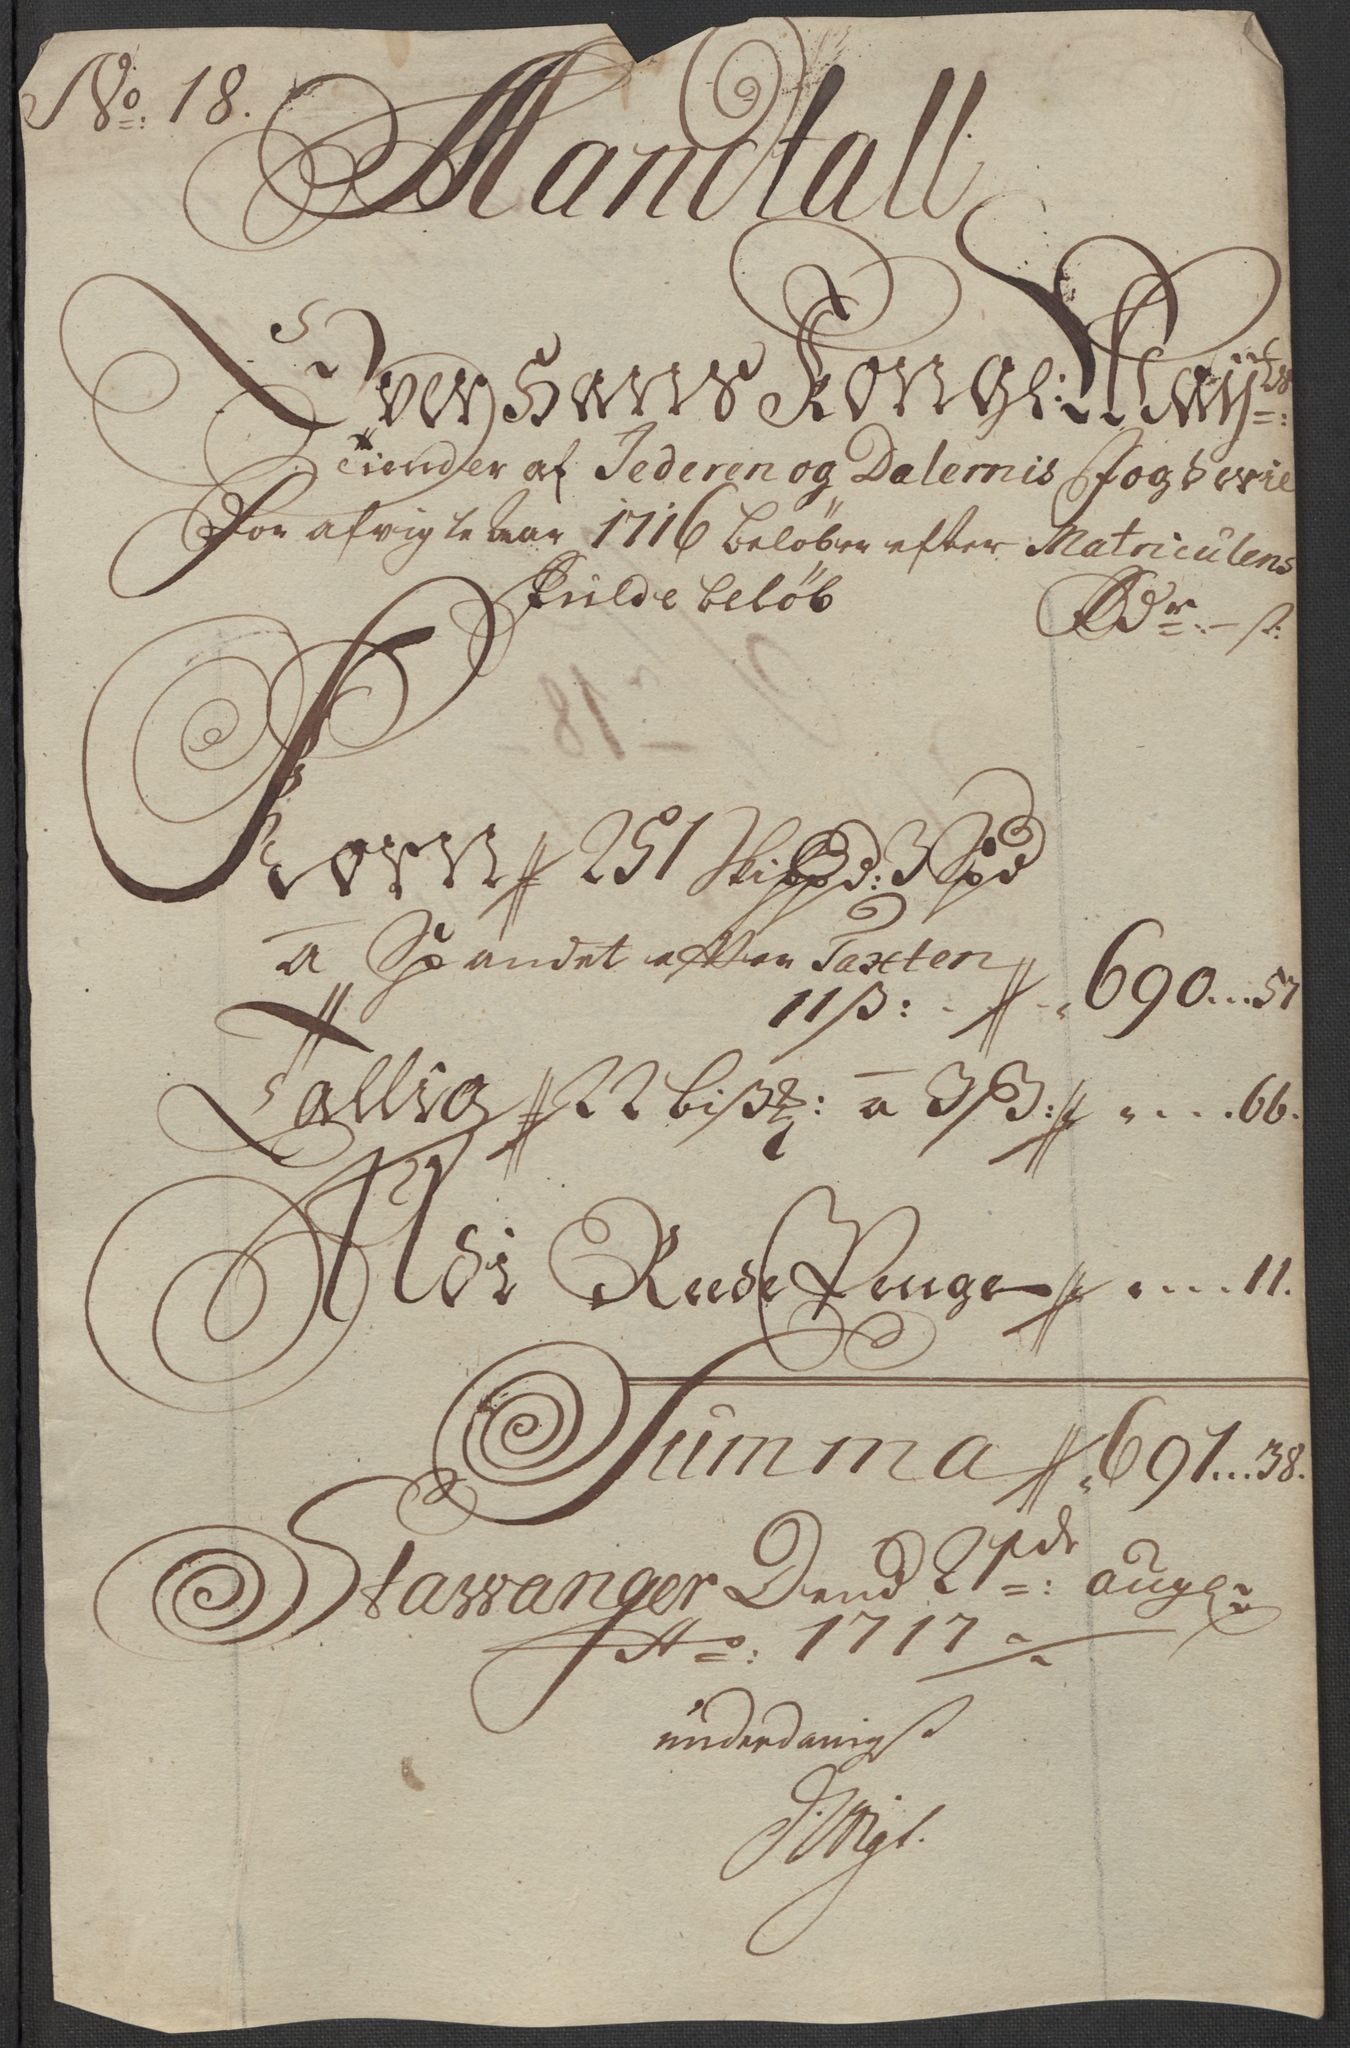 No: 18.
Mandtall
Over Hans Kongl: Maÿts:
Tiender af Jederen og Dalernis fogderie
For afvigte aar 1716 beløber efter Matriculens
fulde beløb Rdr: – s:
Korn 251 skippd: 3 Spd
a Spandet efter Taxten
11 ß: 690...57
Tallig 22 bißz: a 3 ß: ....66.
Ildi Rede Penge ....11.
Summa 691...38.
Stawanger Dend 21de: aug:
Ao: 1717
underdanigst